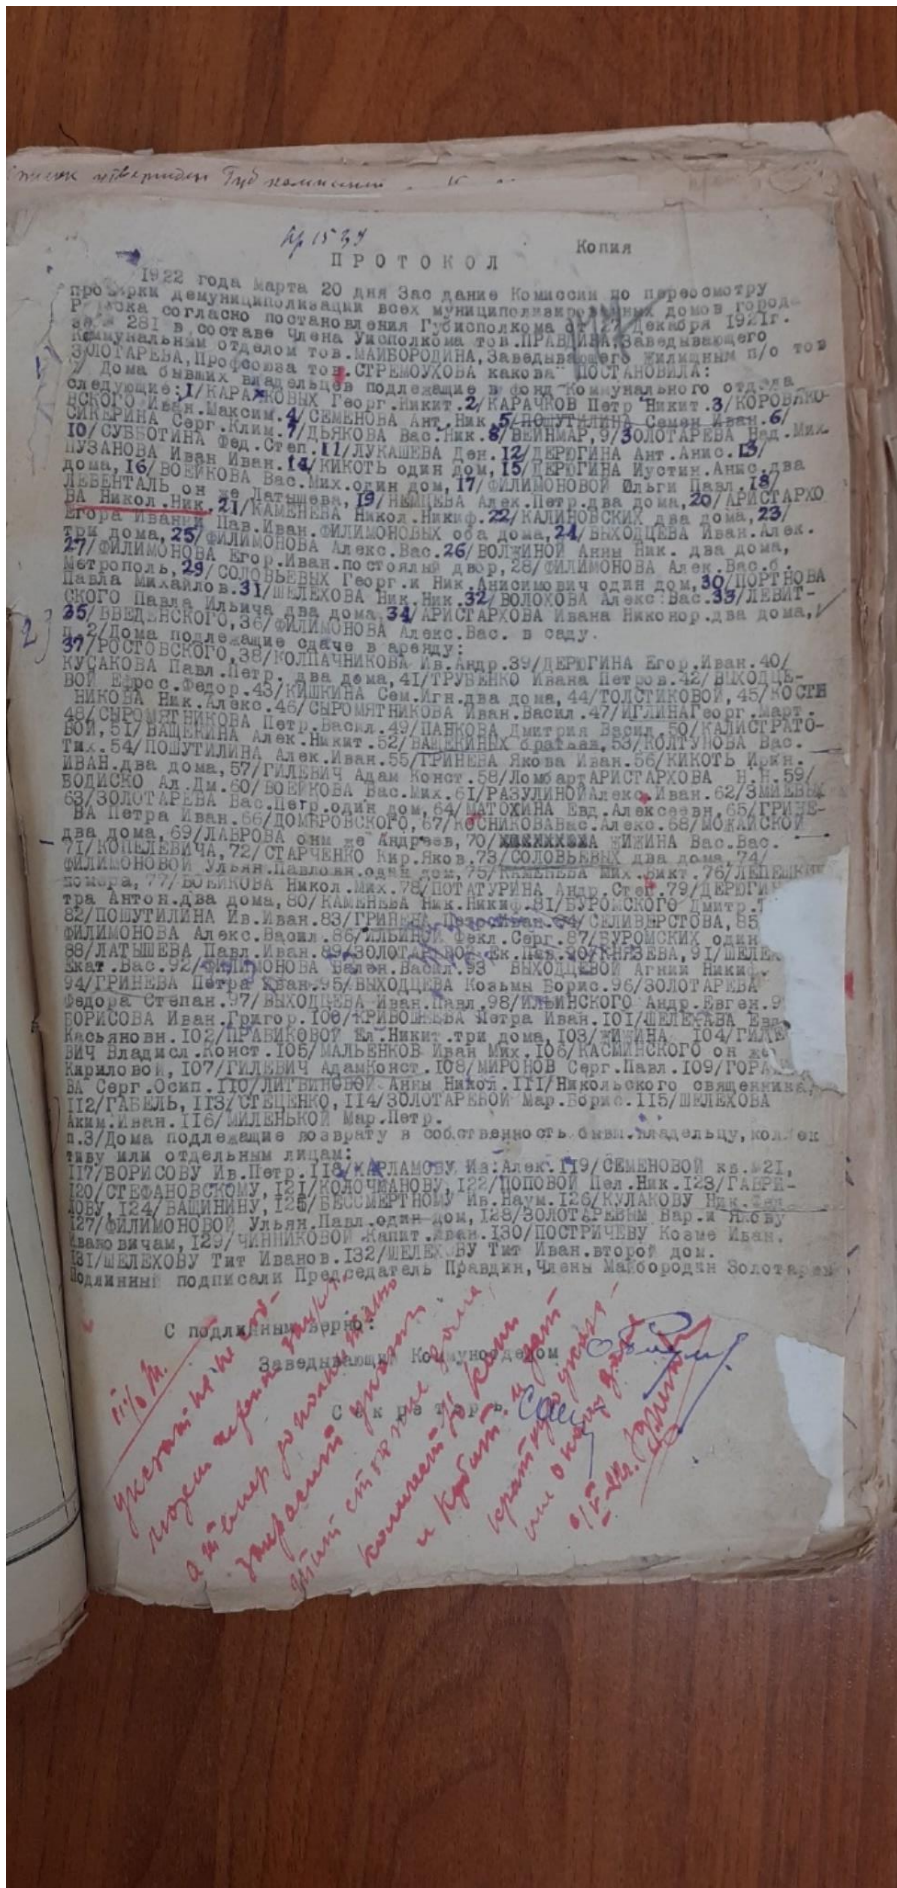 Копия
ПРОТОКОЛ
1922 года марта 20 дня Заседание Комиссии по пересмотру
проверки демуниципализации всех муниципализированных домов города
согласно постановления Губисполкома от 27 декабря 1921г.
за № 281 в составе Члена Уисполкома тов.ПРАВДИНА,Заведывающего
Коммунальным отделом тов.МАЙБОРОДИНА,Заведывающего Жилищным п/о тов
ЗОЛОТАРЕВА,Профсоюза тов.СТРЕМОУХОВА какова ПОСТАНОВИЛА:
Дома бывших владельцев подлежащие в фонд Коммунального отдела
следующие:1/КАРАЧКОВЫХ Георг.Никит.2/КАРАЧКОВ Петр Никит.3/КОРОВЯКО-
ВСКОГО Иван.Максим.4/СЕМЕНОВА Ант.Ник.5/ПОШУТИЛИНА Семен Иван.6/
СИКЕРИНА Серг.Клим.7/ДЬЯКОВА Вас.Ник.8/ВЕЙНМАР,9/ЗОЛОТАРЕВА Над.Мих.
10/СУББОТИНА Фед.Степ.11/ЛУКАШЕВА Ден.12/ДЕРЮГИНА Ант.Анис.13/
ПУЗАНОВА Иван Иван.14/КИКОТЬ один дом,15/ДЕРЮГИНА Иустин.Анис.два
дома,16/ВОЕЙКОВА Вас.Мих.один дом,17/ФИЛИМОНОВОЙ Ольги Павл.18/
ЛЕВЕНТАЛЬ он же Латышева,19/НЕМЦЕВА Алек.Петр.два дома,20/АРИСТАРХО
ВА Никол.Ник.21/КАМЕНЕВА Никол.Никиф.22/КАЛИНОВСКИХ два дома,23/
Егора Ивании Пав.Иван.ФИЛИМОНОВЫХ оба дома,24/ВЫХОДЦЕВА Иван.Алек.
три дома,25/ФИЛИМОНОВА Алекс.Вас.26/ВОЛЖИНОЙ Анны Ник. два дома,
27/ФИЛИМОНОВА Егор.Иван.постоялый двор,28/ФИЛИМОНОВА Алек.Вас.б.
Метрополь,29/СОЛОВЬЕВЫХ Георг.и Ник.Анисимович один дом,30/ПОРТНОВА
Павла Михайлов.31/ШЕЛЕХОВА Ник.Ник.32/ВОЛОХОВА Алекс.Вас.33/ЛЕВИТ-
СКОГО Павла Ильича два дома,34/АРИСТАРХОВА Ивана Никонор.два дома,
35/ВВЕДЕНСКОГО,36/ФИЛИМОНОВА Алекс.Вас. в саду.
п.2/Дома подлежащие сдаче в аренду:
37/РОСТОВСКОГО,38/КОЛПАЧНИКОВА Ив.Андр.39/ДЕРЮГИНА Егор.Иван.40/
КУСАКОВА Павл.Петр. два дома,41/ТРУБЕНКО Ивана Петров.42/ВЫХОДЦЕ-
ВОЙ Ефрос.Федор.43/КИШКИНА Сем.Игн.два дома,44/ТОЛСТИКОВОЙ,45/КОСТИ
НИКОВА Ник.Алекс.46/СЫРОМЯТНИКОВА Иван.Васил.47/ИГЛИНАГеорг.Март.
48/СЫРОМЯТНИКОВА Петр.Васил.49/ПАНКОВА Дмитрия Васил.50/КАЛИСТРАТО-
ВОЙ,51/ВАЩЕКИНА Алек.Никит.52/ВАЩЕКИНЫХ братьев,53/КОЛТУНОВА Вас.
Тих.54/ПОШУТИЛИНА Алек.Иван.55/ГРИНЕВА Якова Иван.56/КИКОТЬ Ирин.
ИВАН.два дома,57/ГИЛЕВИЧ Адам Конст.58/ЛомбартАРИСТАРХОВА Н.Н.59/
ВОДИСКО Ал.Дм.60/ВОЕЙКОВА Вас.Мих.61/РАЗУЛИНОЙАлекс.Иван.62/ЗМИЕВЫХ
63/ЗОЛОТАРЕВА Вас.Петр.один дом,64/МАТОХИНА Евд.Алексеевн.65/ГРИНЕ-
ВА Петра Иван.66/ДОМБРОВСКОГО,67/КОСНИКОВАВас.Алекс.68/МОЖАЙСКОЙ
два дома,69/ЛАВРОВА они же Андреев,70/ ЖИЖИНА Вас.Вас.
71/КОПЕЛЕВИЧА,72/СТАРЧЕНКО Кир.Яков.73/СОЛОВЬЕВЫХ два дома,74/
ФИЛИМОНОВОЙ Ульян.Павловн.один дом,75/КАМЕНЕВА Мих.Викт.76/ЛЕПЕШКИН
номера,77/ВОЕЙКОВА Никол.Мих.78/ПОТАТУРИНА Андр.Степ.79/ДЕРЮГИН
тра Антон.два дома,80/КАМЕНЕВА Ник.Никиф.81/БУРОМСКОГО Дмитр.
82/ПОШУТИЛИНА Ив.Иван.83/ГРИНЕНА ПетраИван.84/СЕЛИВЕРСТОВА,85
ФИЛИМОНОВА Алекс.Васил.86/ИЛЬИНОЙ Фекл.Серг.87/БУРОМСКИХ один
88/ЛАТЫШЕВА Павл.Иван.89/ЗОЛОТАРЕВОЙ Ек.Пав.90/КНЯЗЕВА,91/ШЕЛЕХ
Екат.Вас.92/ФИЛИМОНОВА Вален.Васил.93 ВЫХОДЦЕВОЙ Агнии Никиф.
94/ГРИНЕВА Петра Иван.95/ВЫХОДЦЕВА Козьмы Борис.96/ЗОЛОТАРЕВА
Федора Степан.97/ВЫХОДЦЕВА Иван.Павл.98/ИЛЬИНСКОГО Андр.Евген.9
БОРИСОВА Иван.Григор.100/КРИВОШЕЕВА Петра Иван.101/ШЕЛЕХАВА Евд
Касьяновн.102/ПРАВИКОВОЙ Ел.Никит.три дома,103/ЖИЖИНА 104/ГИЛЕ
ВИЧ Владисл.Конст.105/МАЛЬЕНКОВ Иван Мих.106/КАСМИНСКОГО он же
Кириловой,107/ГИЛЕВИЧ АдамКонст.108/МИРОНОВ Серг.Павл.109/ГОРА
ВА Серг.Осип.110/ЛИТВИНОВОЙ Анны Никол.111/Никольского священника,
112/ГАБЕЛЬ,113/СТЕЦЕНКО,114/ЗОЛОТАРЕВОЙ Мар.Борис.115/ШЕЛЕХОВА
Аким.Иван.116/МИЛЕНЬКОЙ Мар.Петр.
п.3/Дома подлежащие возврату в собственность бывш.владельцу,коллек
тиву или отдельным лицам:
117/БОРИСОВУ Ив.Петр.118/ХАРЛАМОВУ Ив.Алек.119/СЕМЕНОВОЙ кв.№21,
120/СТЕФАНОВСКОМУ,121/КОЛОЧМАНОВУ,122/ПОПОВОЙ Пел.Ник.123/ГАВРИ-
ЛОВУ,124/ВАЩИНИНУ,125/БЕССМЕРТНОМУ Ив.Наум.126/КУЛАКОВУ Ник.
127/ФИЛИМОНОВОЙ Ульян.Павл.один дом,128/ЗОЛОТАРЕВЫМ Вар.и Якову
Иваковичам,129/ЧИННИКОВОЙ Капит.Иван.130/ПОСТРИЧЕВУ Козме Иван.
131/ШЕЛЕХОВУ Тит Иванов.132/ШЕЛЕХОВУ Тит Иван.второй дом.
Подлинный подписали Председатель Правдин,Члены Майбородин Золотарев
С подлинным верно:
Заведывающий Коммунотделом
Секретарь